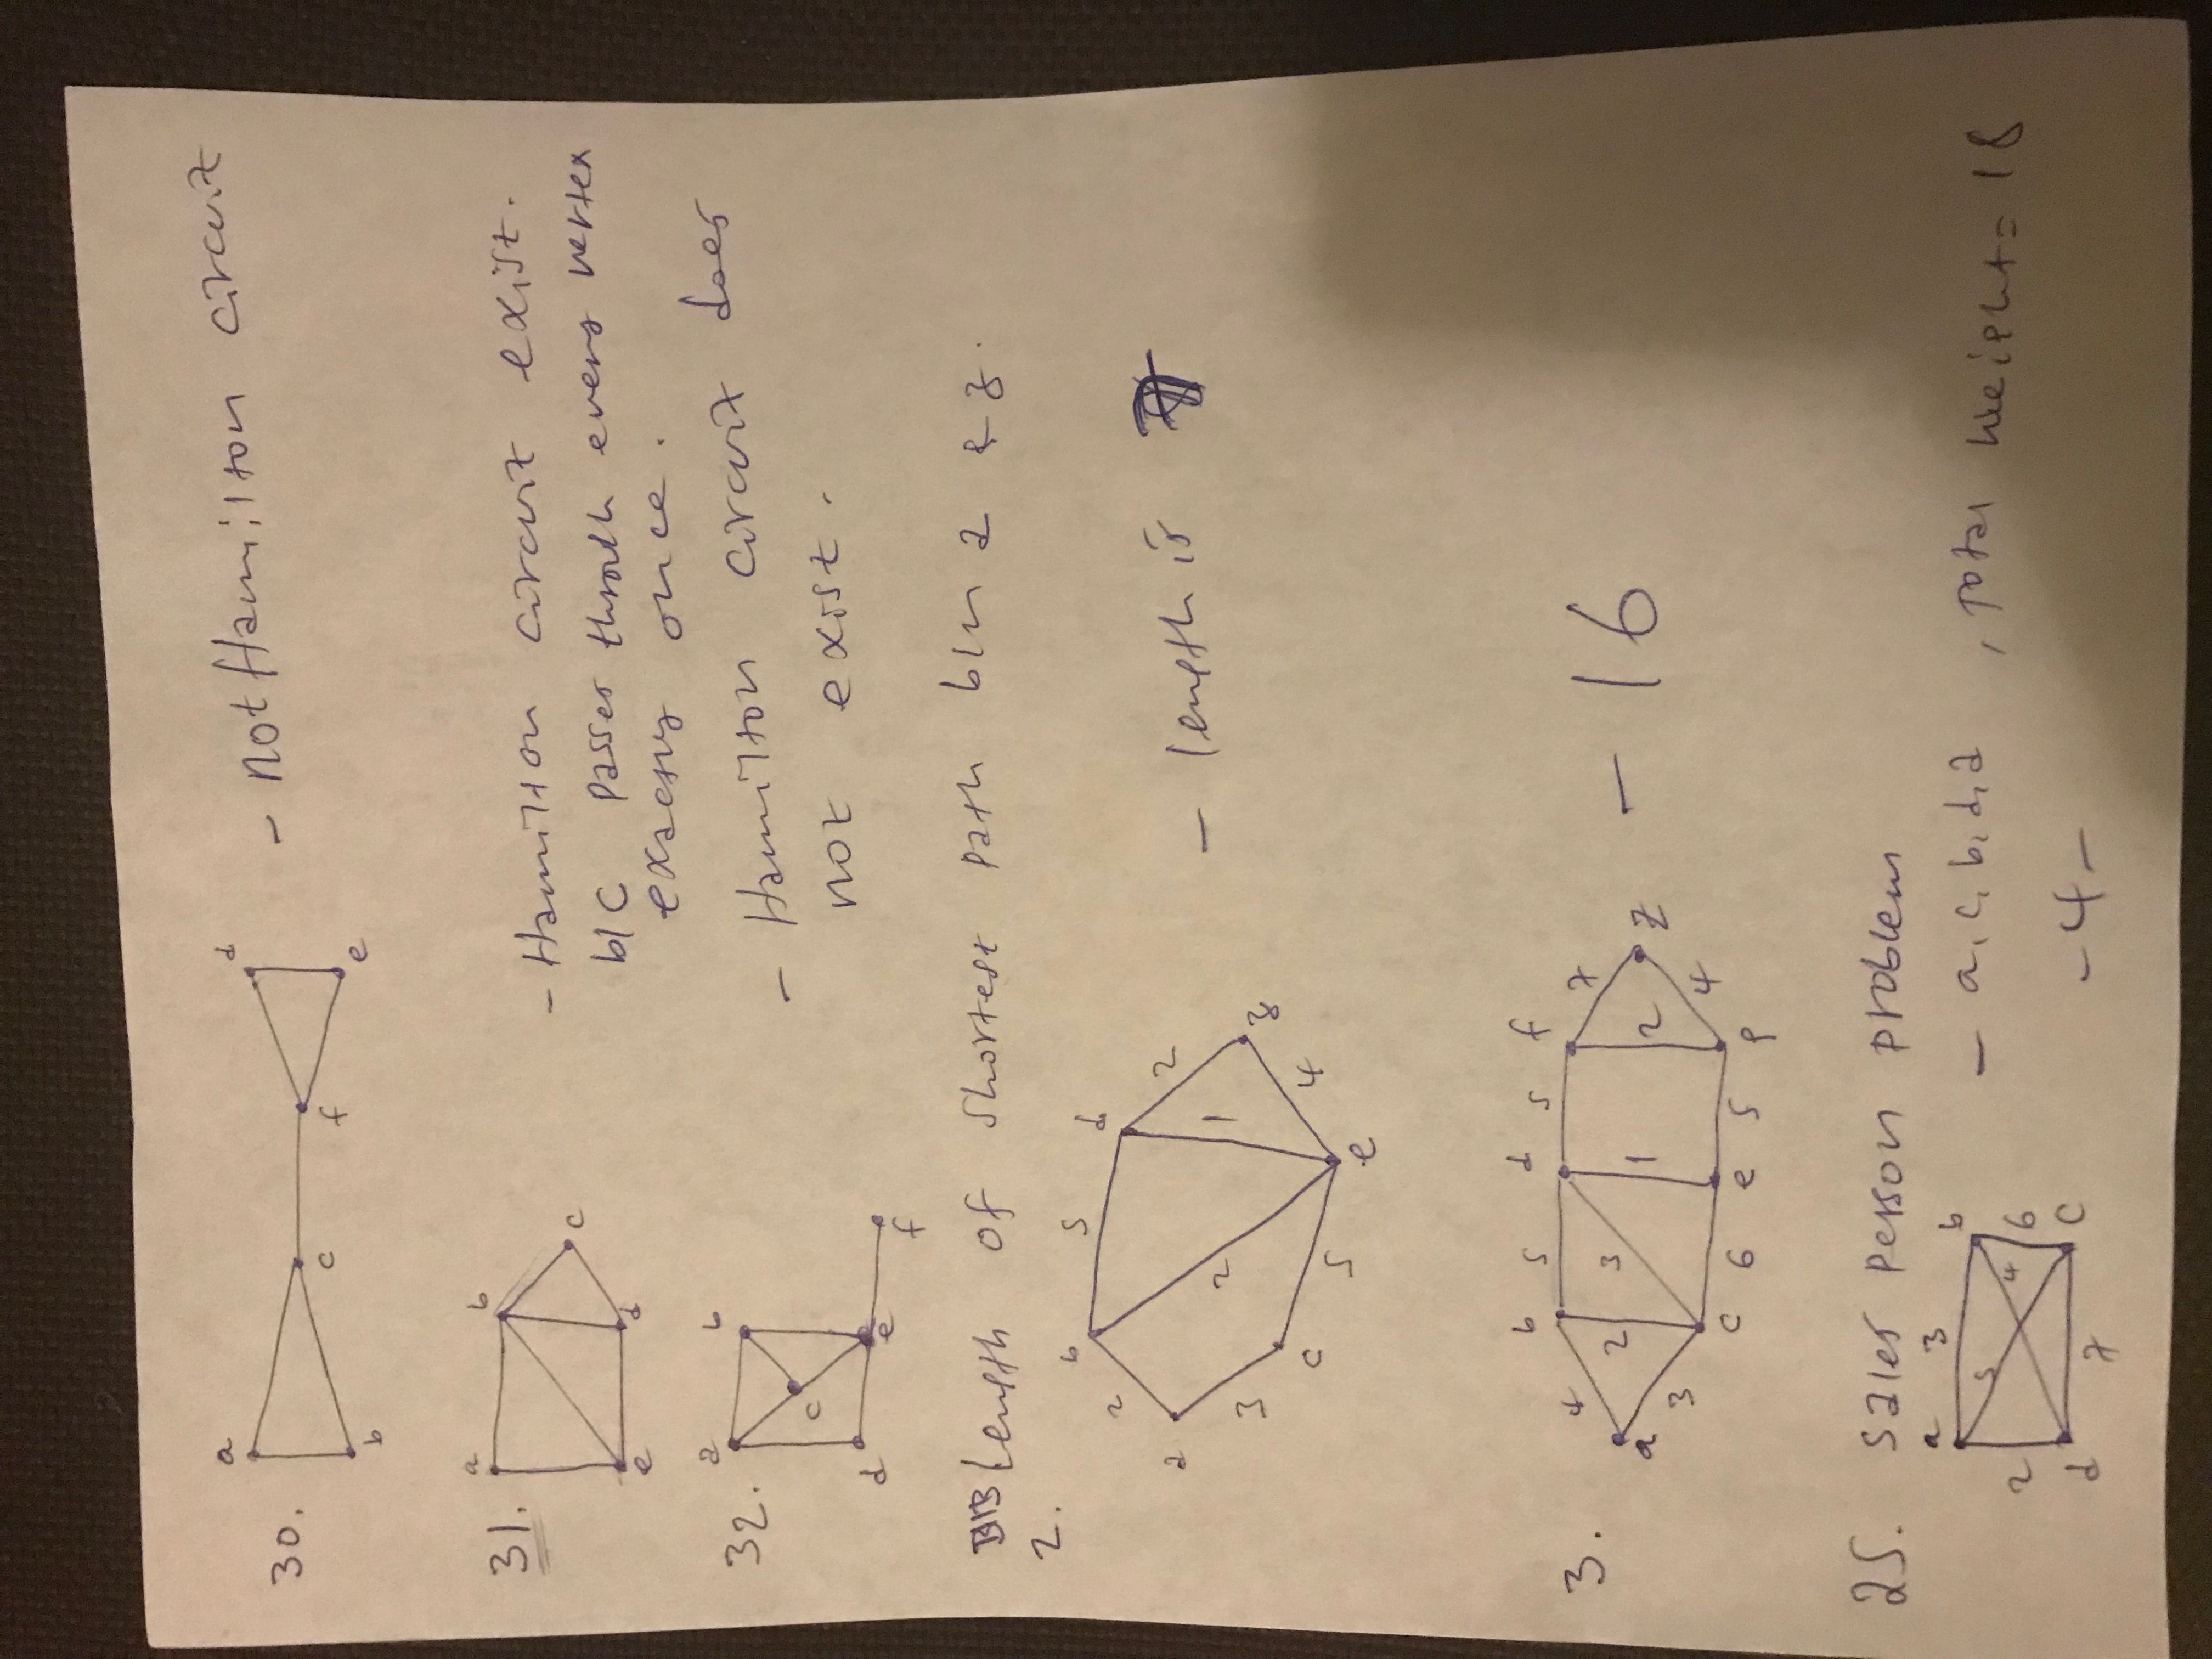 a
d
30.
c
f
b
e
- not Hamilton circuit
31.
a
b
c
e
d
- Hamilton circuit exist.
b/c passes through every vertex
exactly once.
32.
a
b
c
d
e
f
- Hamilton circuit does
not exist.
Length of shortest path b/n a & z.
2.
b
5
d
2
2
a
2
1
z
3
c
5
4
e
- length is 7
3.
b
5
d
5
f
4
7
a
2
3
1
2
z
3
4
c
6
e
5
g
- 16
25. sales person problem
a
3
b
5
4
2
6
d
7
c
- a, c, b, d, a , total weight = 18
-4-